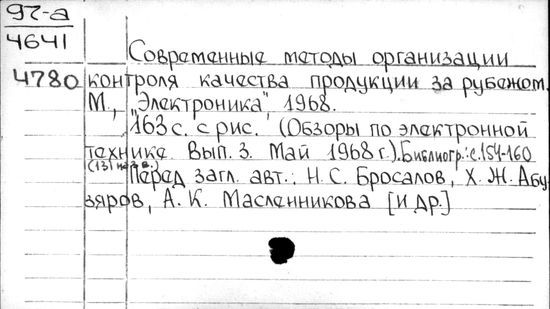 97-а
4641
Современные методы организации
4780 контроля качества продукции за рубежом.
М., "Электроника", 1968.
163 с. с рис. (Обзоры по электронной
технике. Вып. 3. Май 1968 г.). Библиогр.: с. 154-160
(131 назв.)
Перед загл. авт.: Н. С. Бросалов, Х. Ж. Абу-
зяров, А. К. Масленникова [и др.]